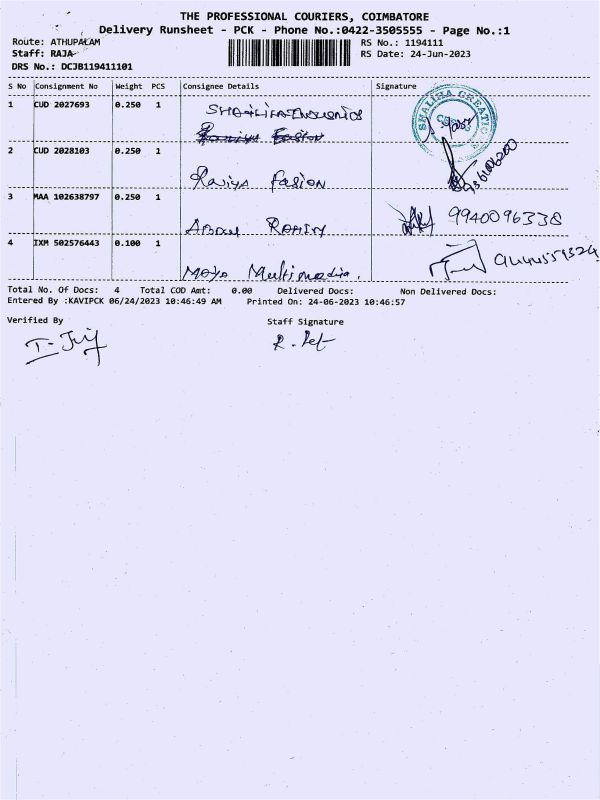 THE PROFESSIONAL COURIERS, COIMBATORE
Delivery Runsheet - PCK - Phone No.:0422-3505555 - Page No.:1
Route: ATHUPALAM RS No.: 1194111
Staff: RAJA RS Date: 24-Jun-2023
DRS No.: DCJB119411101
S No Consignment No Weight PCS Consignee Details Signature
1 CUD 2027693 0.250 1
SHALIHA CREATIONS
2 CUD 2028103 0.250 1
Raviya Fasion
3 MAA 102638797 0.250 1
9940096338
4 IXM 502576443 0.100 1
Maya Multimedia.
Total No. Of Docs: 4 Total COD Amt: 0.00 Delivered Docs: Non Delivered Docs:
Entered By :KAVIPCK 06/24/2023 10:46:49 AM Printed On: 24-06-2023 10:46:57
Verified By Staff Signature